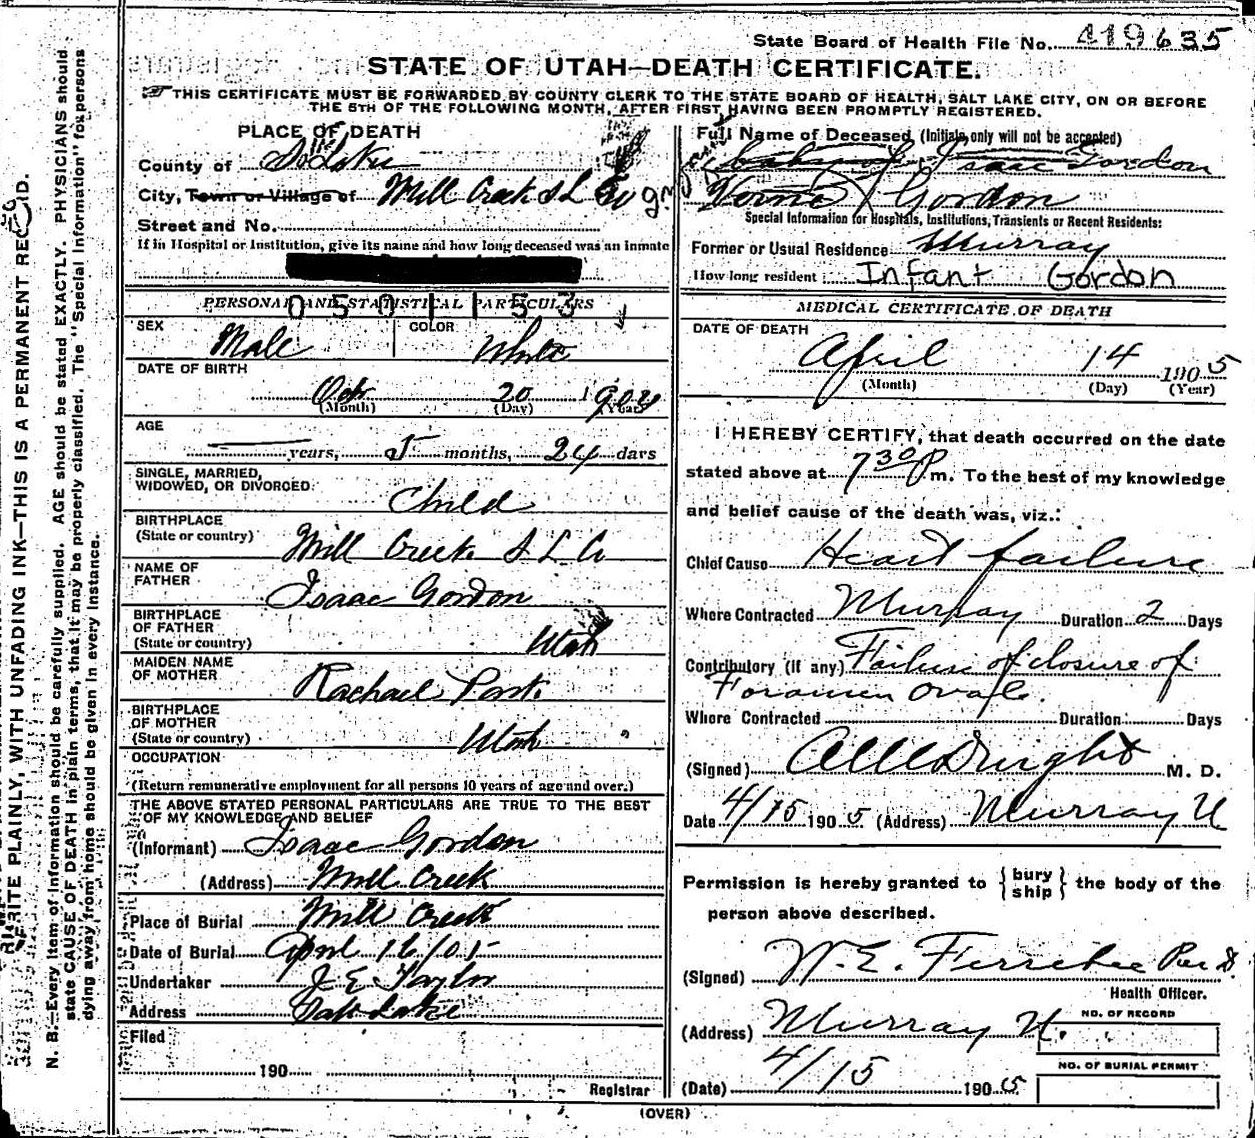 State Board of Health File No. 419635
STATE OF UTAH—DEATH CERTIFICATE.
THIS CERTIFICATE MUST BE FORWARDED BY COUNTY CLERK TO THE STATE BOARD OF HEALTH, SALT LAKE CITY, ON OR BEFORE
THE 5TH OF THE FOLLOWING MONTH, AFTER FIRST HAVING BEEN PROMPTLY REGISTERED.
PLACE OF DEATH
County of
City, Town or Village of Mill Creek S L
Street and No.
If in Hospital or Institution, give its name and how long deceased was an inmate
PERSONAL AND STATISTICAL PARTICULARS
0501153
SEX Male
COLOR White
DATE OF BIRTH
Oct 20 1904
(Month) (Day) (Year)
AGE
years, 5 months, 24 days
SINGLE, MARRIED,
WIDOWED, OR DIVORCED: Child
BIRTHPLACE
(State or country) Mill Creek S L Co
NAME OF
FATHER Isaac Gordon
BIRTHPLACE
OF FATHER
(State or country) Utah
MAIDEN NAME
OF MOTHER Rachael
BIRTHPLACE
OF MOTHER
(State or country) Utah
OCCUPATION
(Return remunerative employment for all persons 10 years of age and over.)
THE ABOVE STATED PERSONAL PARTICULARS ARE TRUE TO THE BEST
OF MY KNOWLEDGE AND BELIEF
(Informant) Isaac Gordon
(Address) Mill Creek
Place of Burial Mill Creek
Date of Burial April 16/05
Undertaker J E Taylor
Address Salt Lake
Filed
190
Registrar
Full Name of Deceased (Initials only will not be accepted)
baby of Isaac Gordon
Gordon
Special Information for Hospitals, Institutions, Transients or Recent Residents:
Former or Usual Residence Murray
How long resident Infant Gordon
MEDICAL CERTIFICATE OF DEATH
DATE OF DEATH
April 14 1905
(Month) (Day) (Year)
I HEREBY CERTIFY, that death occurred on the date
stated above at 7 30 P m. To the best of my knowledge
and belief cause of the death was, viz.:
Chief Cause Heart failure
Where Contracted Murray Duration 2 Days
Contributory (If any) Failure of closure of
Foramen Ovale.
Where Contracted Duration Days
(Signed) M. D.
Date 4/15 1905 (Address) Murray U
Permission is hereby granted to { bury
ship } the body of the
person above described.
(Signed) W. E. Ferrebee
Health Officer.
(Address) Murray U.
(Date) 4/15 1905
NO. OF RECORD
NO. OF BURIAL PERMIT
(OVER)
WRITE PLAINLY, WITH UNFADING INK—THIS IS A PERMANENT RECORD.
N. B.—Every item of information should be carefully supplied. AGE should be stated EXACTLY. PHYSICIANS should
state CAUSE OF DEATH in plain terms, that it may be properly classified. The "Special Information" for persons
dying away from home should be given in every instance.